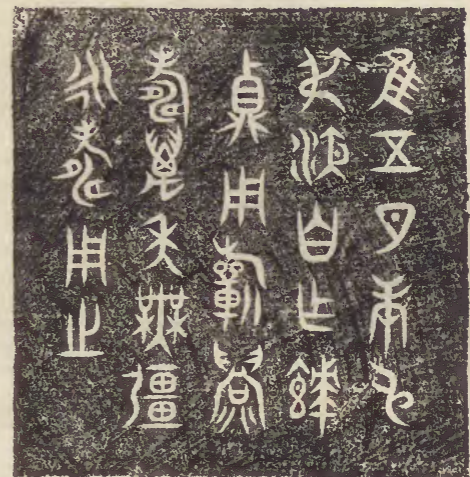 隹五月庚申
弔液自乍饙
貞用旂眉
壽萬年無疆
永壽用之